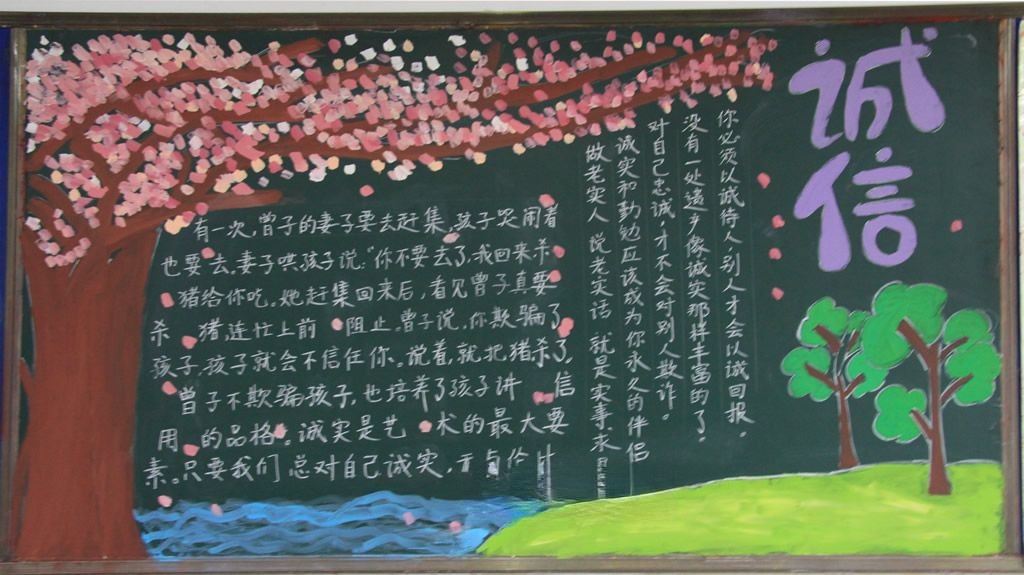 诚信
你必须以诚待人别人才会以诚回报。
没有一处遗产像诚实那样丰富的了。
对自己忠诚，才不会对别人欺诈。
诚实和勤勉应该成为你永久的伴侣
做老实人 说老实话 就是实事求
有一次，曾子的妻子要去赶集，孩子哭闹着
也要去。妻子哄孩子说："你不要去了，我回来杀
猪给你吃。她赶集回来后，看见曾子真要
杀猪，连忙上前阻止。曾子说，你欺骗了
孩子，孩子就会不信任你。说着，就把猪杀了。
曾子不欺骗孩子，也培养了孩子讲信
用的品格。诚实是艺术的最大要
素。只要我们总对自己诚实，